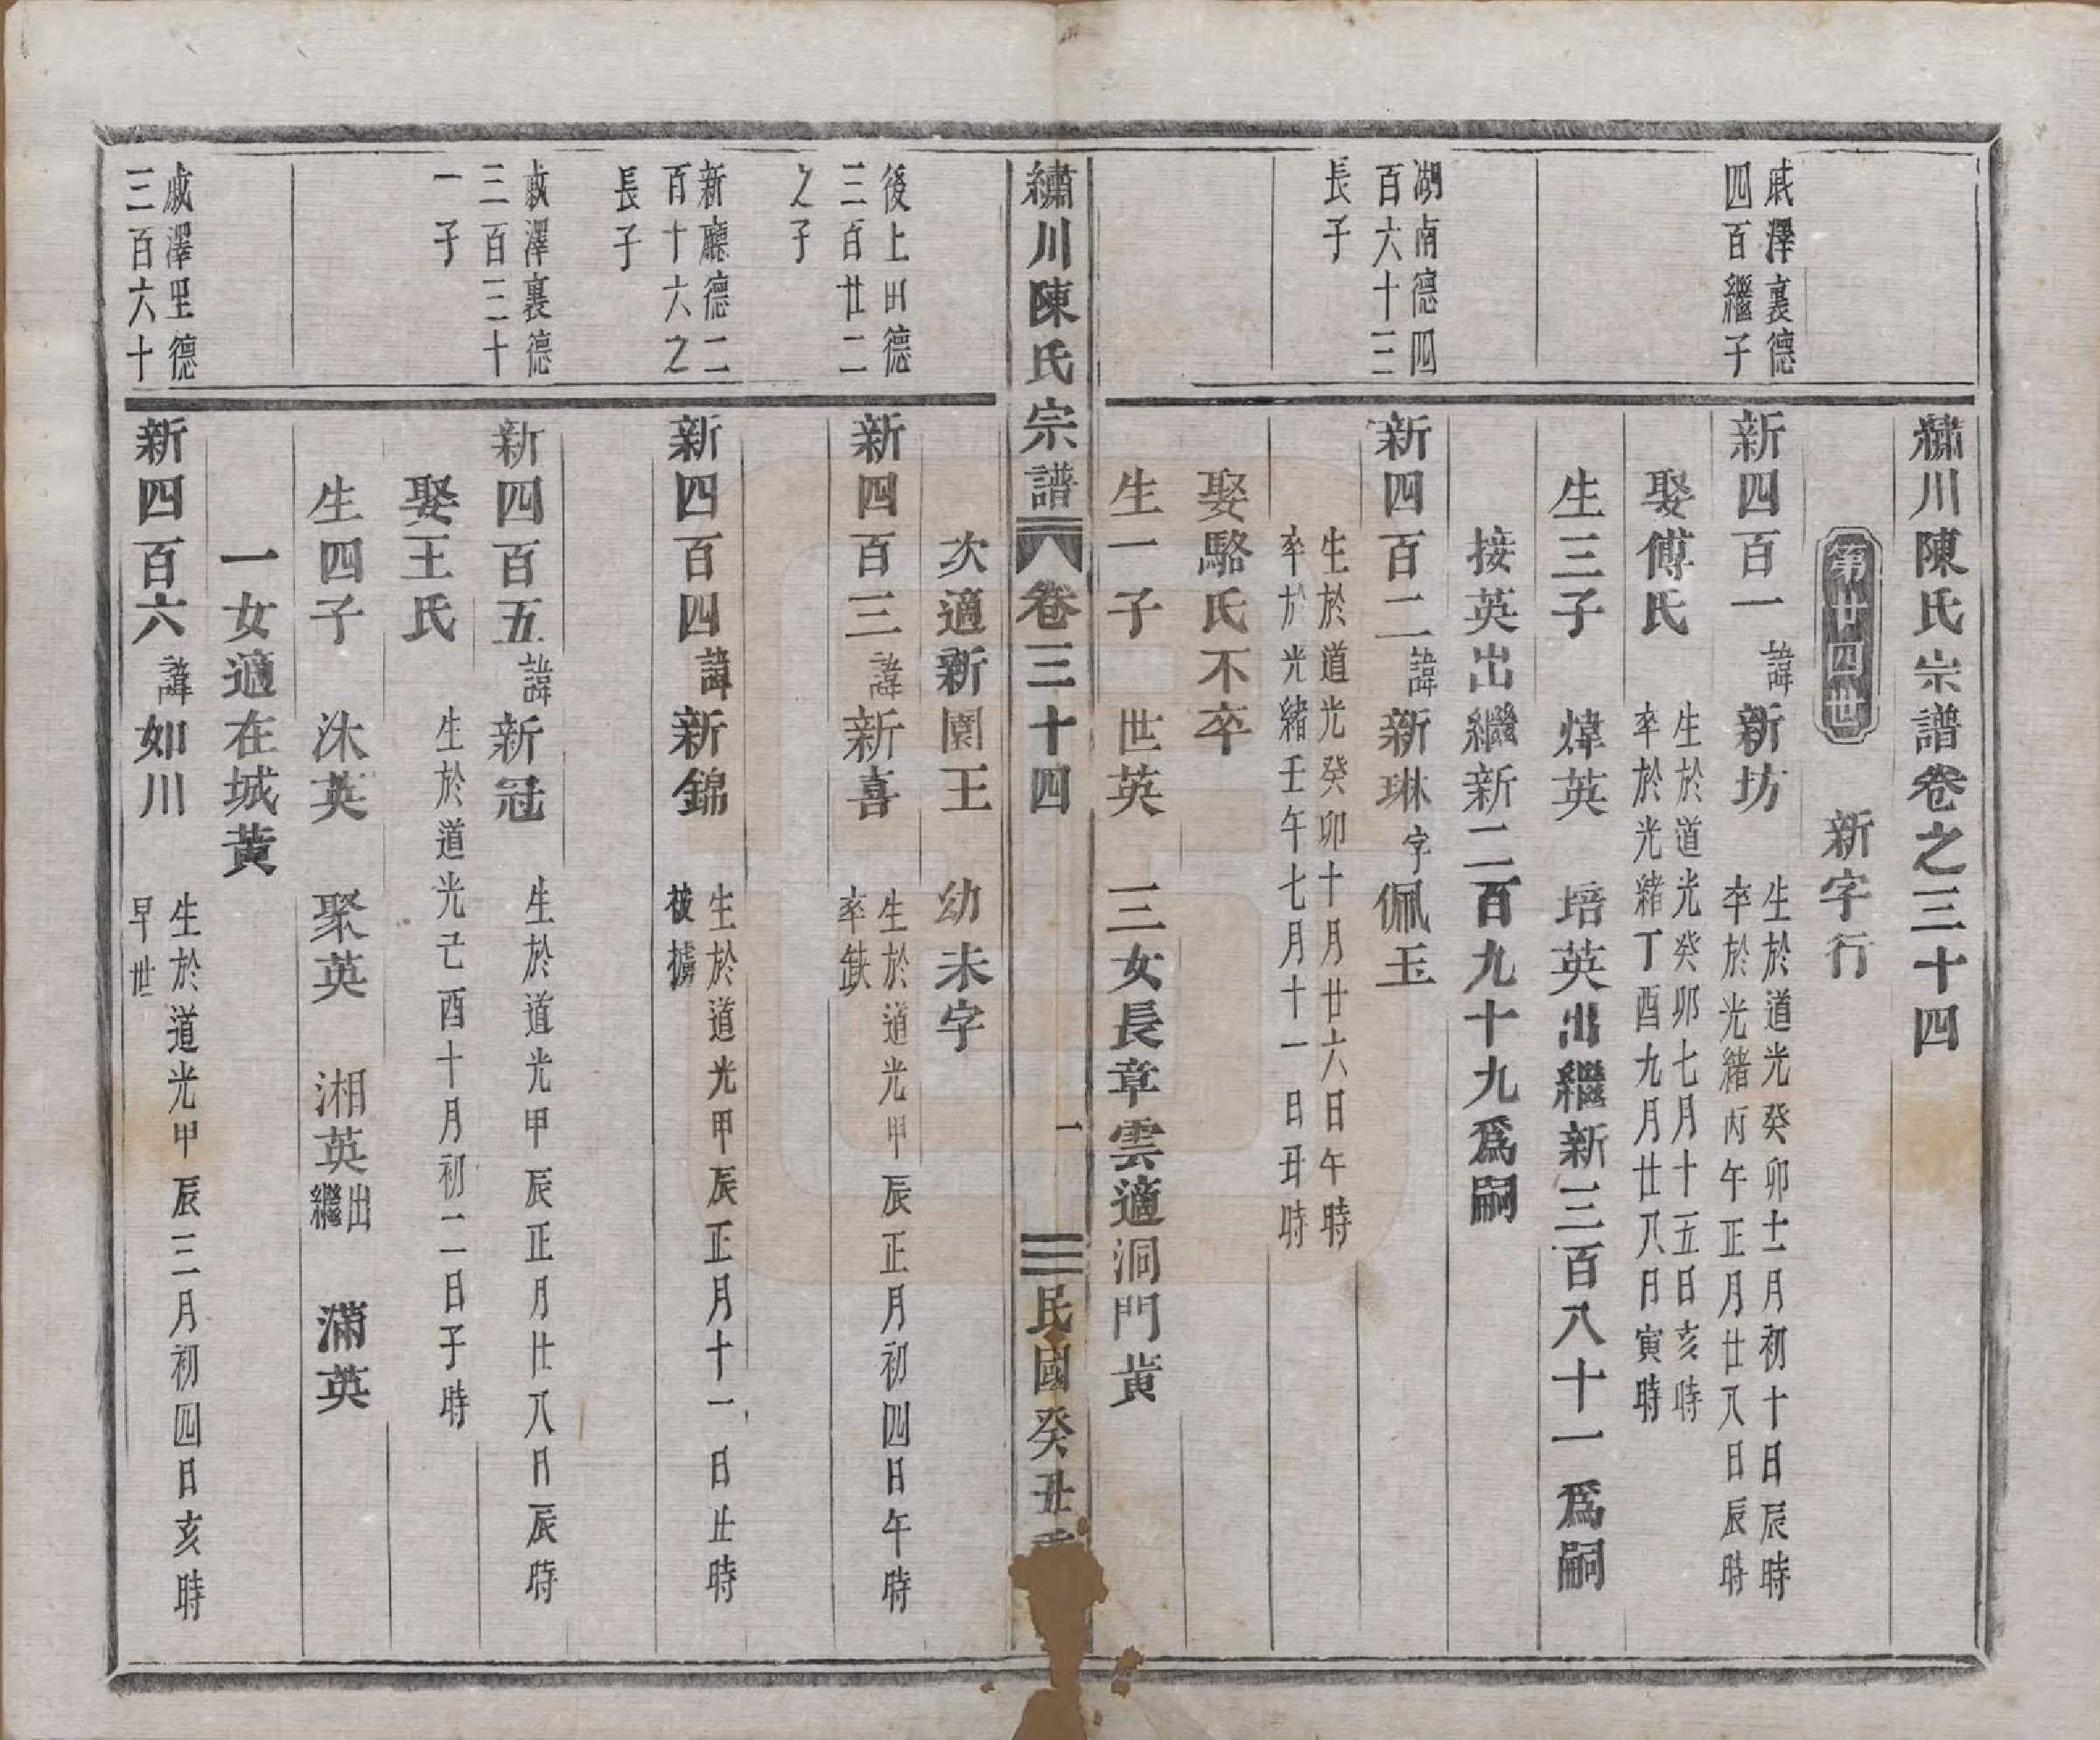 繡川陳氏宗譜卷之三十四
第廿四世
新字行
戚澤裏德
四百繼子
新四百一 諱新坊
生於道光癸卯十二月初十日辰時
卒於光緒丙午正月廿八日辰時
娶傅氏
生於道光癸卯七月十五日亥時
卒於光緒丁酉九月廿八日寅時
生三子 煒英 培英出繼新三百八十一爲嗣
接英出繼新二百九十九爲嗣
湖南德四
百六十三
長子
新四百二 諱新琳 字佩玉
生於道光癸卯十月廿六日午時
卒於光緒壬午七月十一日丑時
娶駱氏不卒
生一子 世英 三女長章雲適洞門黃
繡川陳氏宗譜 卷三十四 一 民國癸丑重
次適新園王 幼未字
後上田德
三百廿二
之子
新四百三 諱新喜
生於道光甲辰正月初四日午時
卒缺
新廳德二
百十六之
長子
新四百四 諱新錦
生於道光甲辰正月十一日丑時
被擄
戚澤裏德
三百三十
一子
新四百五 諱新冠
生於道光甲辰正月廿八日辰時
娶王氏
生於道光己酉十月初二日子時
生四子 沐英 聚英 湘英出繼 滿英
一女適在城黃
戚澤里德
三百六十
新四百六 諱如川
生於道光甲辰三月初四日亥時
早世